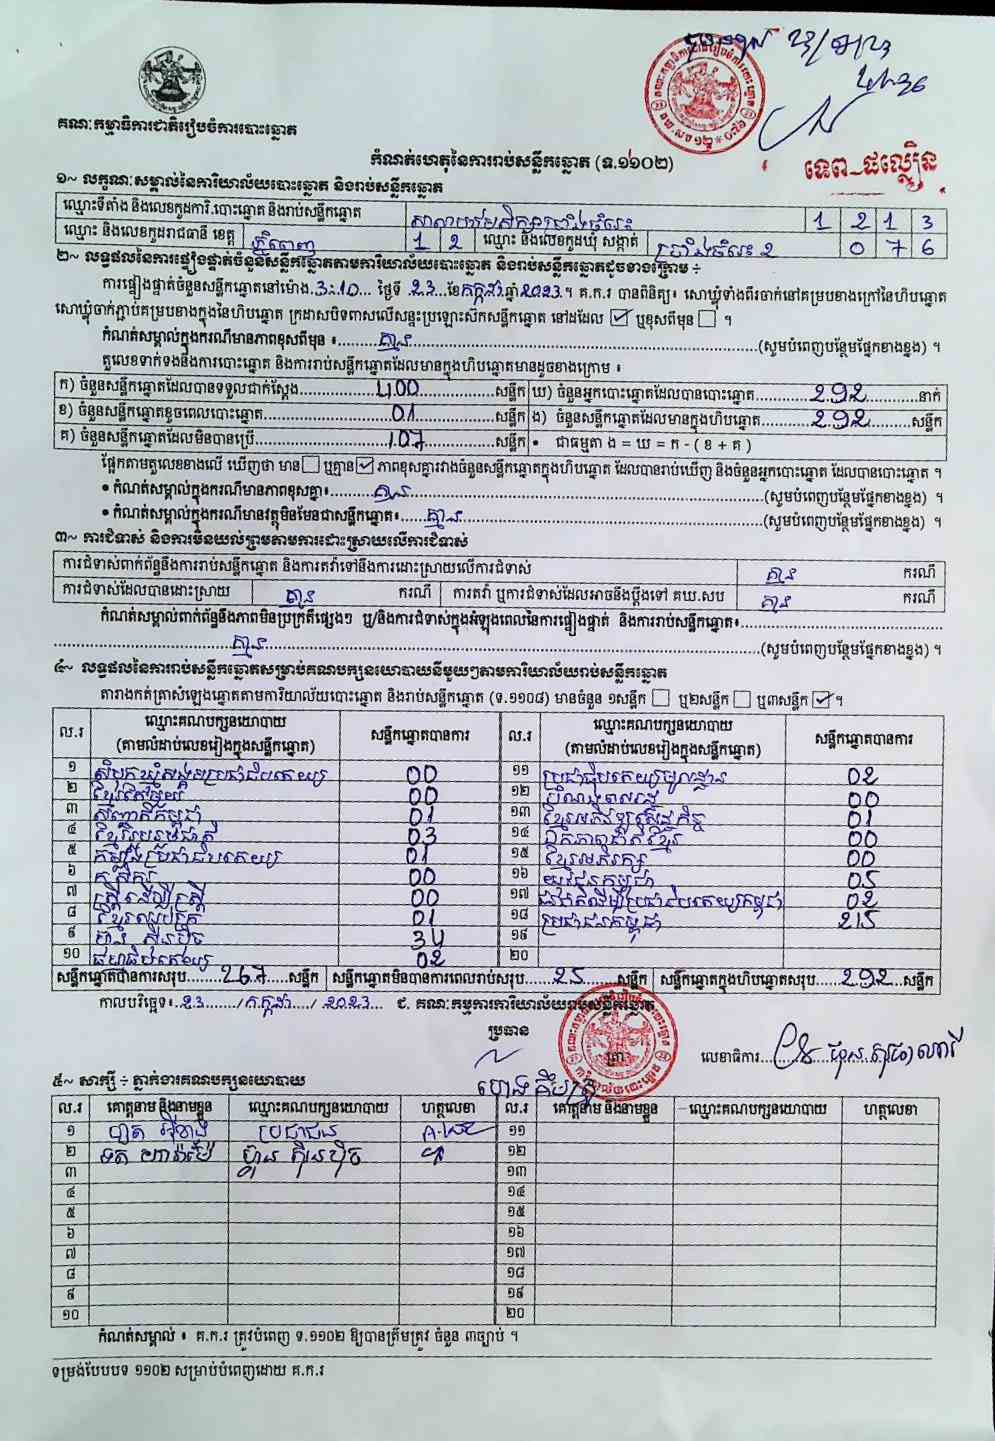 គណៈកម្មាធិការជាតិរៀបចំការបោះឆ្នោត
កំណត់ហេតុនៃការរាប់សន្លឹកឆ្នោត (ទ.១១០២)
ទេព_ផល្លៀន
១~ លក្ខណៈសម្គាល់នៃការិយាល័យបោះឆ្នោត និងរាប់សន្លឹកឆ្នោត
ឈ្មោះទីតាំង និងលេខកូដការិ.បោះឆ្នោត និងរាប់សន្លឹកឆ្នោត 1 2 1 3
ឈ្មោះ និងលេខកូដរាជធានី ខេត្ត ភ្នំពេញ 1 2 ឈ្មោះ និងលេខកូដឃុំ សង្កាត់ ច្រាំងចំរេះ 2 0 7 6
២~ លទ្ធផលនៃការផ្ទៀងផ្ទាត់ចំនួនសន្លឹកឆ្នោតតាមការិយាល័យបោះឆ្នោត និងរាប់សន្លឹកឆ្នោតដូចខាងក្រោម ÷
ការផ្ទៀងផ្ទាត់ចំនួនសន្លឹកឆ្នោតនៅម៉ោង 3:10 ថ្ងៃទី 23 ខែ កក្កដា ឆ្នាំ 2023 ។ គ.ក.រ បានពិនិត្យ៖ សោឃ្លុំទាំងពីរចាក់នៅគម្របខាងក្រៅនៃហិបឆ្នោត
សោឃ្លុំចាក់ភ្ជាប់គម្របខាងក្នុងនៃហិបឆ្នោត ក្រដាសបិទពាសលើសន្ទះប្រឡោះស៊កសន្លឹកឆ្នោត នៅដដែល ☑ ឬខុសពីមុន ☐ ។
កំណត់សម្គាល់ក្នុងករណីមានភាពខុសពីមុន ៖ គ្មាន (សូមបំពេញបន្ថែមផ្នែកខាងខ្នង) ។
តួលេខទាក់ទងនឹងការបោះឆ្នោត និងការរាប់សន្លឹកឆ្នោតដែលមានក្នុងហិបឆ្នោតមានដូចខាងក្រោម ៖
ក) ចំនួនសន្លឹកឆ្នោតដែលបានទទួលជាក់ស្តែង 400 សន្លឹក ឃ) ចំនួនអ្នកបោះឆ្នោតដែលបានបោះឆ្នោត 292 នាក់
ខ) ចំនួនសន្លឹកឆ្នោតខូចពេលបោះឆ្នោត 01 សន្លឹក ង) ចំនួនសន្លឹកឆ្នោតដែលមានក្នុងហិបឆ្នោត 292 សន្លឹក
គ) ចំនួនសន្លឹកឆ្នោតដែលមិនបានប្រើ 107 សន្លឹក • ជាធម្មតា ង = ឃ = ក - ( ខ + គ )
ផ្អែកតាមតួលេខខាងលើ ឃើញថា មាន ☐ ឬគ្មាន ☑ ភាពខុសគ្នារវាងចំនួនសន្លឹកឆ្នោតក្នុងហិបឆ្នោត ដែលបានរាប់ឃើញ និងចំនួនអ្នកបោះឆ្នោត ដែលបានបោះឆ្នោត ។
• កំណត់សម្គាល់ក្នុងករណីមានភាពខុសគ្នា៖ គ្មាន (សូមបំពេញបន្ថែមផ្នែកខាងខ្នង) ។
• កំណត់សម្គាល់ក្នុងករណីមានវត្ថុមិនមែនជាសន្លឹកឆ្នោត៖ គ្មាន (សូមបំពេញបន្ថែមផ្នែកខាងខ្នង) ។
៣~ ការជំទាស់ និងការមិនយល់ព្រមតាមការដោះស្រាយលើការជំទាស់
ការជំទាស់ពាក់ព័ន្ធនឹងការរាប់សន្លឹកឆ្នោត និងការតវ៉ាទៅនឹងការដោះស្រាយលើការជំទាស់ គ្មាន ករណី
ការជំទាស់ដែលបានដោះស្រាយ គ្មាន ករណី ការតវ៉ា ឬការជំទាស់ដែលអាចនឹងប្តឹងទៅ គឃ.សប គ្មាន ករណី
កំណត់សម្គាល់ពាក់ព័ន្ធនឹងភាពមិនប្រក្រតីផ្សេងៗ ឬ/និងការជំទាស់ក្នុងអំឡុងពេលនៃការផ្ទៀងផ្ទាត់ និងការរាប់សន្លឹកឆ្នោត៖
គ្មាន (សូមបំពេញបន្ថែមផ្នែកខាងខ្នង) ។
៤~ លទ្ធផលនៃការរាប់សន្លឹកឆ្នោតសម្រាប់គណបក្សនយោបាយនីមួយៗតាមការិយាល័យរាប់សន្លឹកឆ្នោត
តារាងកត់ត្រាសំឡេងឆ្នោតតាមការិយាល័យបោះឆ្នោត និងរាប់សន្លឹកឆ្នោត (ទ.១១០៨) មានចំនួន ១សន្លឹក ☐ ឬ២សន្លឹក ☐ ឬ៣សន្លឹក ☑ ។
ល.រ ឈ្មោះគណបក្សនយោបាយ (តាមលំដាប់លេខរៀងក្នុងសន្លឹកឆ្នោត) សន្លឹកឆ្នោតបានការ ល.រ ឈ្មោះគណបក្សនយោបាយ (តាមលំដាប់លេខរៀងក្នុងសន្លឹកឆ្នោត) សន្លឹកឆ្នោតបានការ
១ សំបុកឃ្មុំសង្គមប្រជាធិបតេយ្យ 00 ១១ ប្រជាធិបតេយ្យមូលដ្ឋាន 02
២ ខ្មែរតែមួយ 00 ១២ 00
៣ សញ្ជាតិកម្ពុជា 01 ១៣ ខ្មែរអភិវឌ្ឍន៍សេដ្ឋកិច្ច 01
៤ ខ្មែររួបរួមជាតិ 03 ១៤ ឯកភាពជាតិខ្មែរ 00
៥ កម្លាំងប្រជាធិបតេយ្យ 01 ១៥ ខ្មែរអភិរក្ស 00
៦ កសិករ 00 ១៦ យុវជនកម្ពុជា 05
៧ ស្ត្រីដើម្បីស្ត្រី 00 ១៧ ដើម្បីប្រជាធិបតេយ្យកម្ពុជា 02
៨ ខ្មែរឈប់ក្រ 01 ១៨ ប្រជាជនកម្ពុជា 215
៩ ហ៊្វុន ស៊ិនប៉ិច 34 ១៩
១០ ធម្មាធិបតេយ្យ 02 ២០
សន្លឹកឆ្នោតបានការសរុប 267 សន្លឹក សន្លឹកឆ្នោតមិនបានការពេលរាប់សរុប 25 សន្លឹក សន្លឹកឆ្នោតក្នុងហិបឆ្នោតសរុប 292 សន្លឹក
កាលបរិច្ឆេទ៖ 23 / កក្កដា / 2023 ជ. គណៈកម្មការការិយាល័យរាប់សន្លឹកឆ្នោត
ប្រធាន
ត្រា លេខាធិការ
៥~ សាក្សី ÷ ភ្នាក់ងារគណបក្សនយោបាយ
ល.រ គោត្តនាម និងនាមខ្លួន ឈ្មោះគណបក្សនយោបាយ ហត្ថលេខា ល.រ គោត្តនាម និងនាមខ្លួន ឈ្មោះគណបក្សនយោបាយ ហត្ថលេខា
១ ប្រជាជន ១១
២ ហ៊្វុន ស៊ិនប៉ិច ១២
៣ ១៣
៤ ១៤
៥ ១៥
៦ ១៦
៧ ១៧
៨ ១៨
៩ ១៩
១០ ២០
កំណត់សម្គាល់ ៖ គ.ក.រ ត្រូវបំពេញ ទ.១១០២ ឱ្យបានត្រឹមត្រូវ ចំនួន ៣ច្បាប់ ។
ទម្រង់បែបបទ ១១០២ សម្រាប់បំពេញដោយ គ.ក.រ